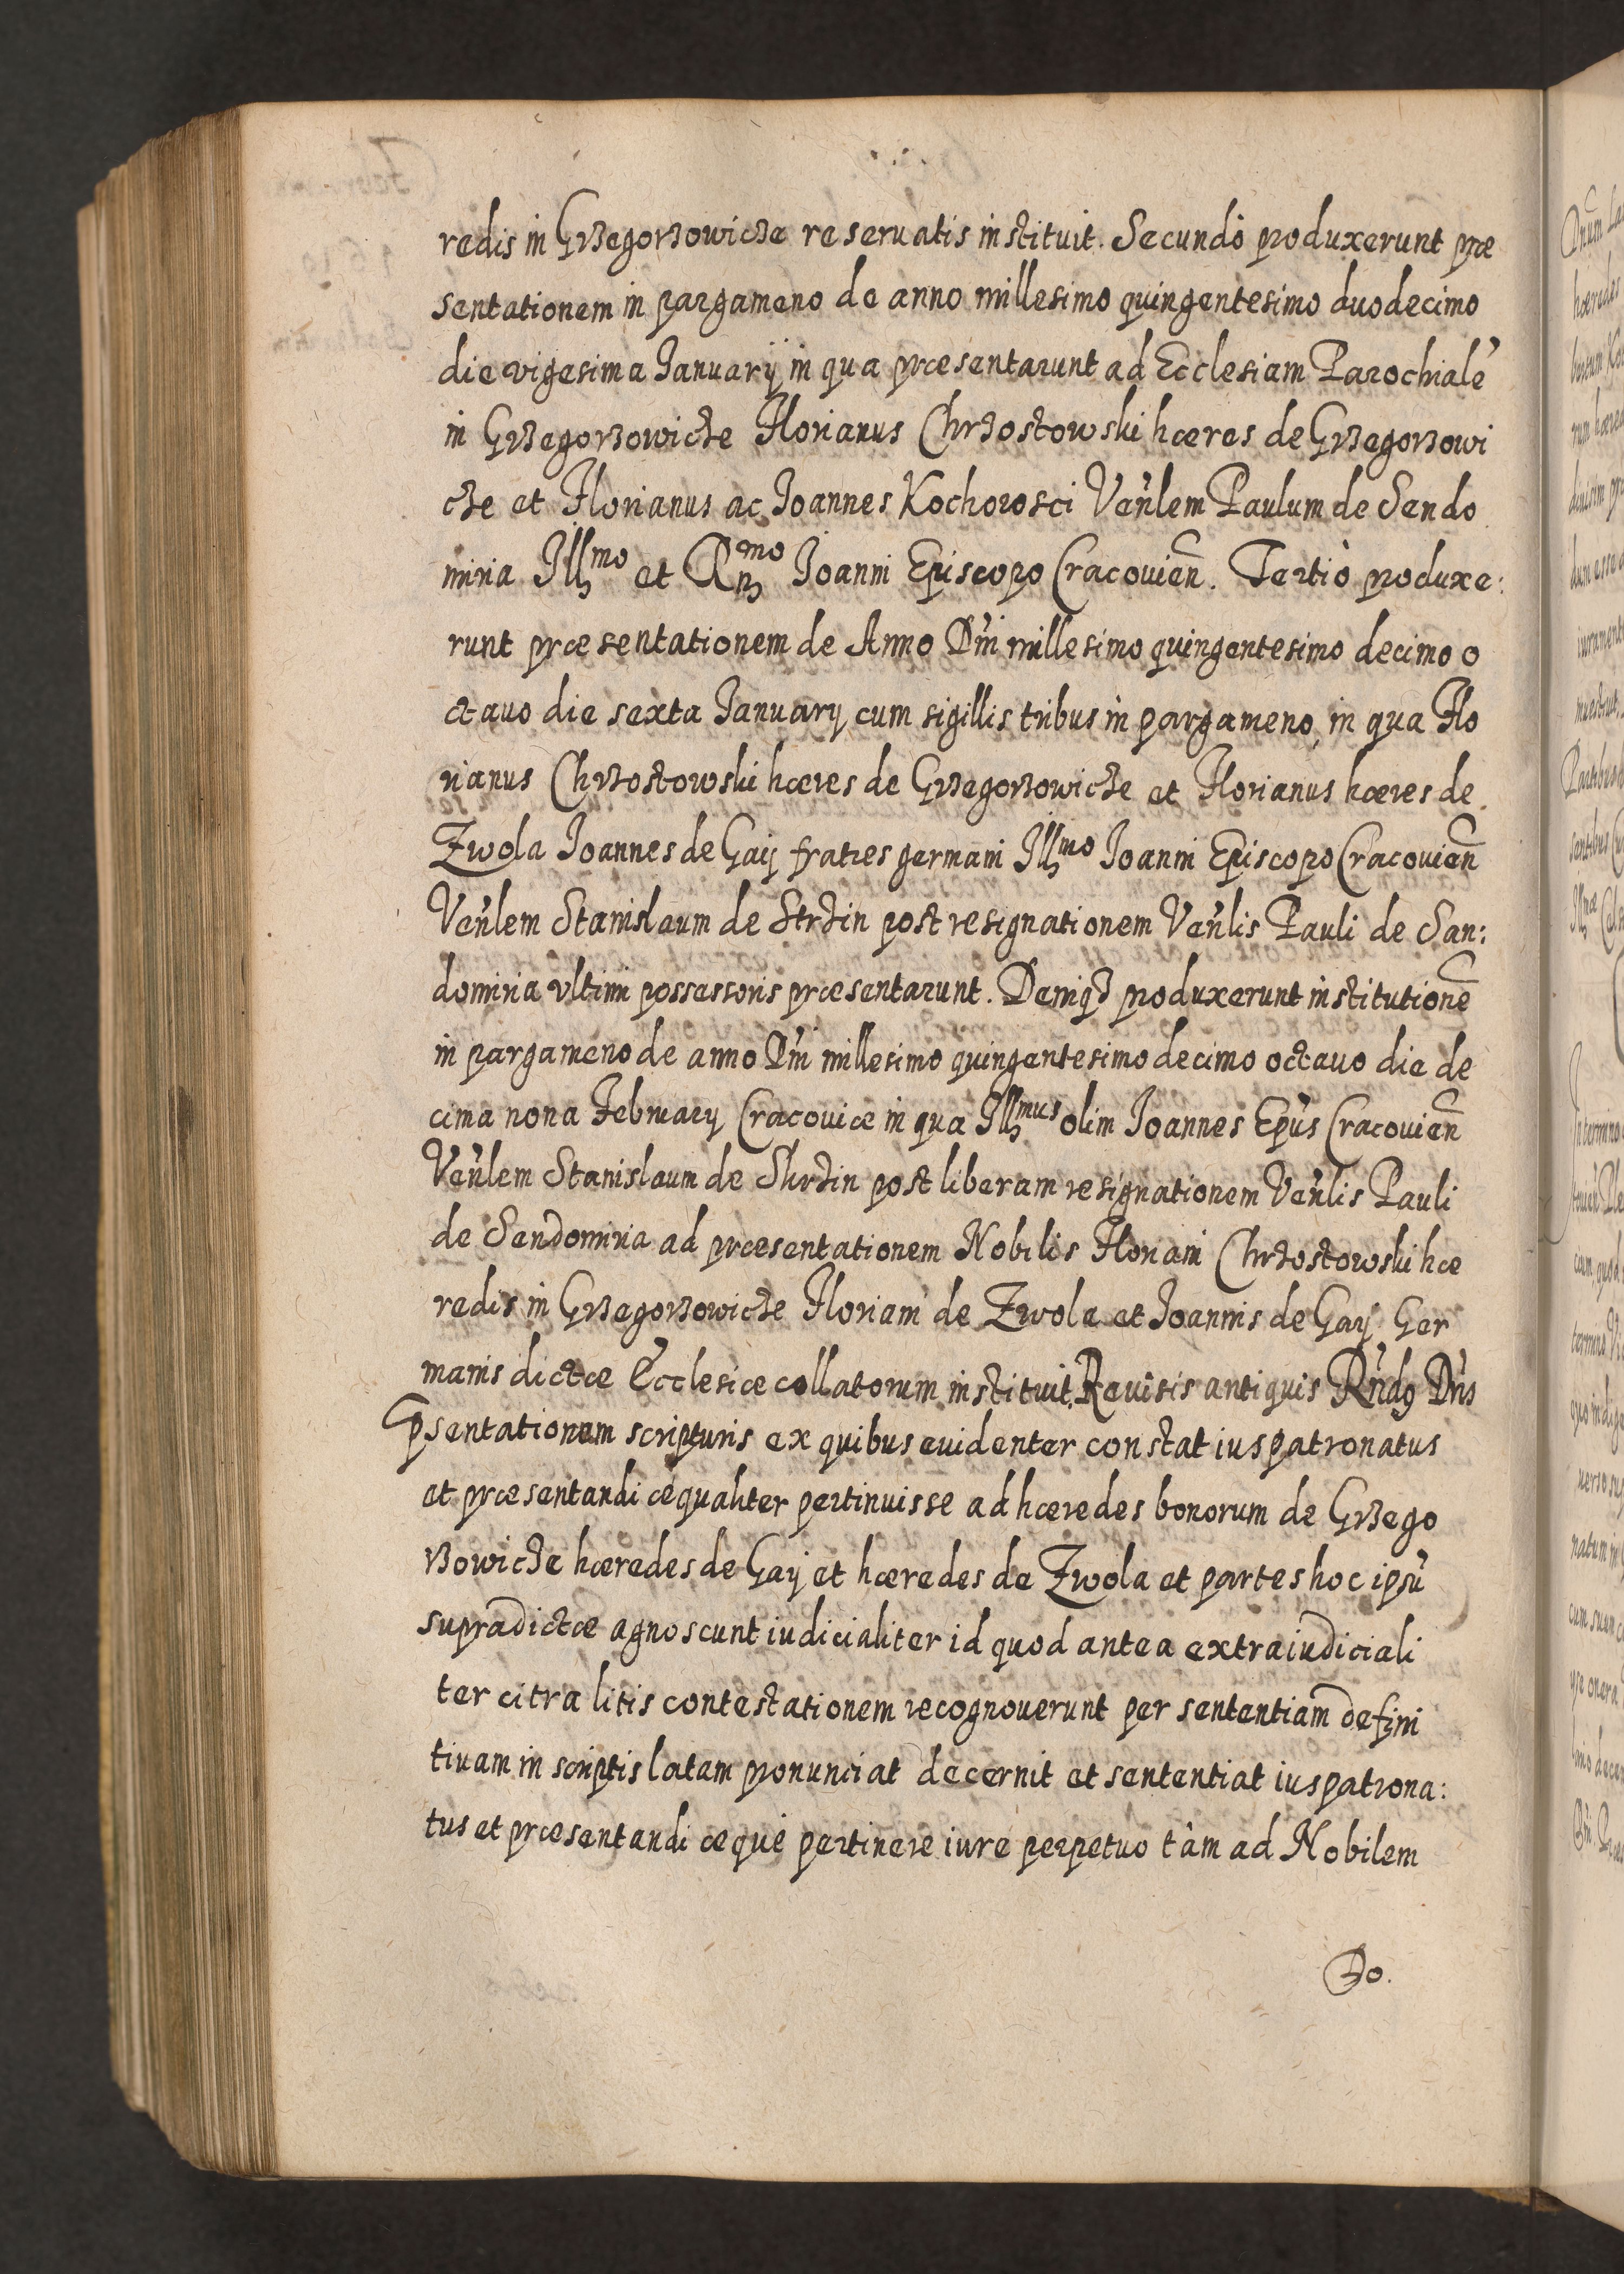 redis in Grzegorzowicze reseruatis instituit. Secundò produxerunt præ
sentationem in pargameno de anno millesimo quingentesimo duodecimo
die vigesima Januarÿ in qua præsentarunt ad Ecclesiam Parochialẽ
in Grzegorzowicze Florianus Chrzostowski hæres de Grzegorzowi
cze et Florianus ac Joannes Kochorosci Venlem Paulum de Sendo
miria Illmo et Rmo Joanni Episcopo Cracouien. Tertiò produxe:
runt præsentationem de Anno Dni millesimo quingentesimo decimo o
ctauo die sexta Januarÿ cum sigillis tribus in pargameno, in qua Flo
rianus Chrzostowski hæres de Grzegorzowicze et Florianus hæres de
Zwola Joannes de Gaÿ fratres germani Illmo Joanni Episcopo Cracouien
Venlem Stanislaum de Strzin post resignationem Venlis Pauli de San:
domiria vltimi possessoris præsentarunt. Deniqz produxerunt institutionẽ
in pargameno de anno Dni millesimo quingentesimo decimo octauo die de
cima nona Februarÿ Cracouiæ in qua Illmus olim Joannes Epus Cracouien
Venlem Stanislaum de Skrzin post liberam resignationem Venlis Pauli
de Sendomiria ad præsentationem Nobilis Floriani Chrzostowski hæ
redis in Grzegorzowicze Floriani de Zwola et Joannis de Gaÿ Ger
manis dictæ Ecclesiæ collatorum instituit. Reuisis antiquis Rndg Dns
p̃sentationum scripturis ex quibus euidenter constat ius patronatus
et præsentandi æqualiter pertinuisse ad hæredes bonorum de Grzego
rzowicze hæredes de Gaÿ et hæredes de Zwola et partes hoc ipsũ
supradictæ agnoscunt iudicialiter id quod antea extraiudiciali
ter citra litis contestationem recognouerunt per sententiam defini
tiuam in scriptis latam pronunciat decernit et sententiat ius patrona:
tus et præsentandi æquè pertinere iure perpetuo tàm ad Nobilem
Do.